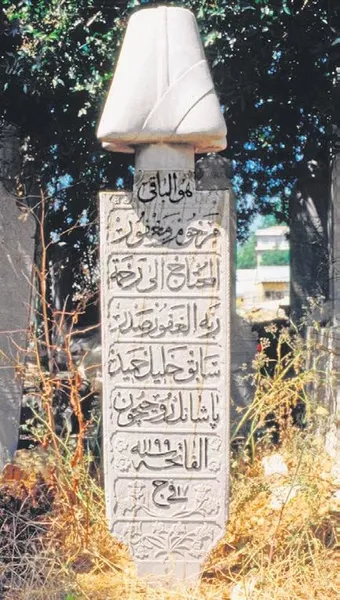 هو الباقى
مرحوم و مغفور
المحتاج الى رحمة
ربه الغفور صدر
سابق خليل حميد
پاشانك روحيچون
الفاتحه ١١٩٩